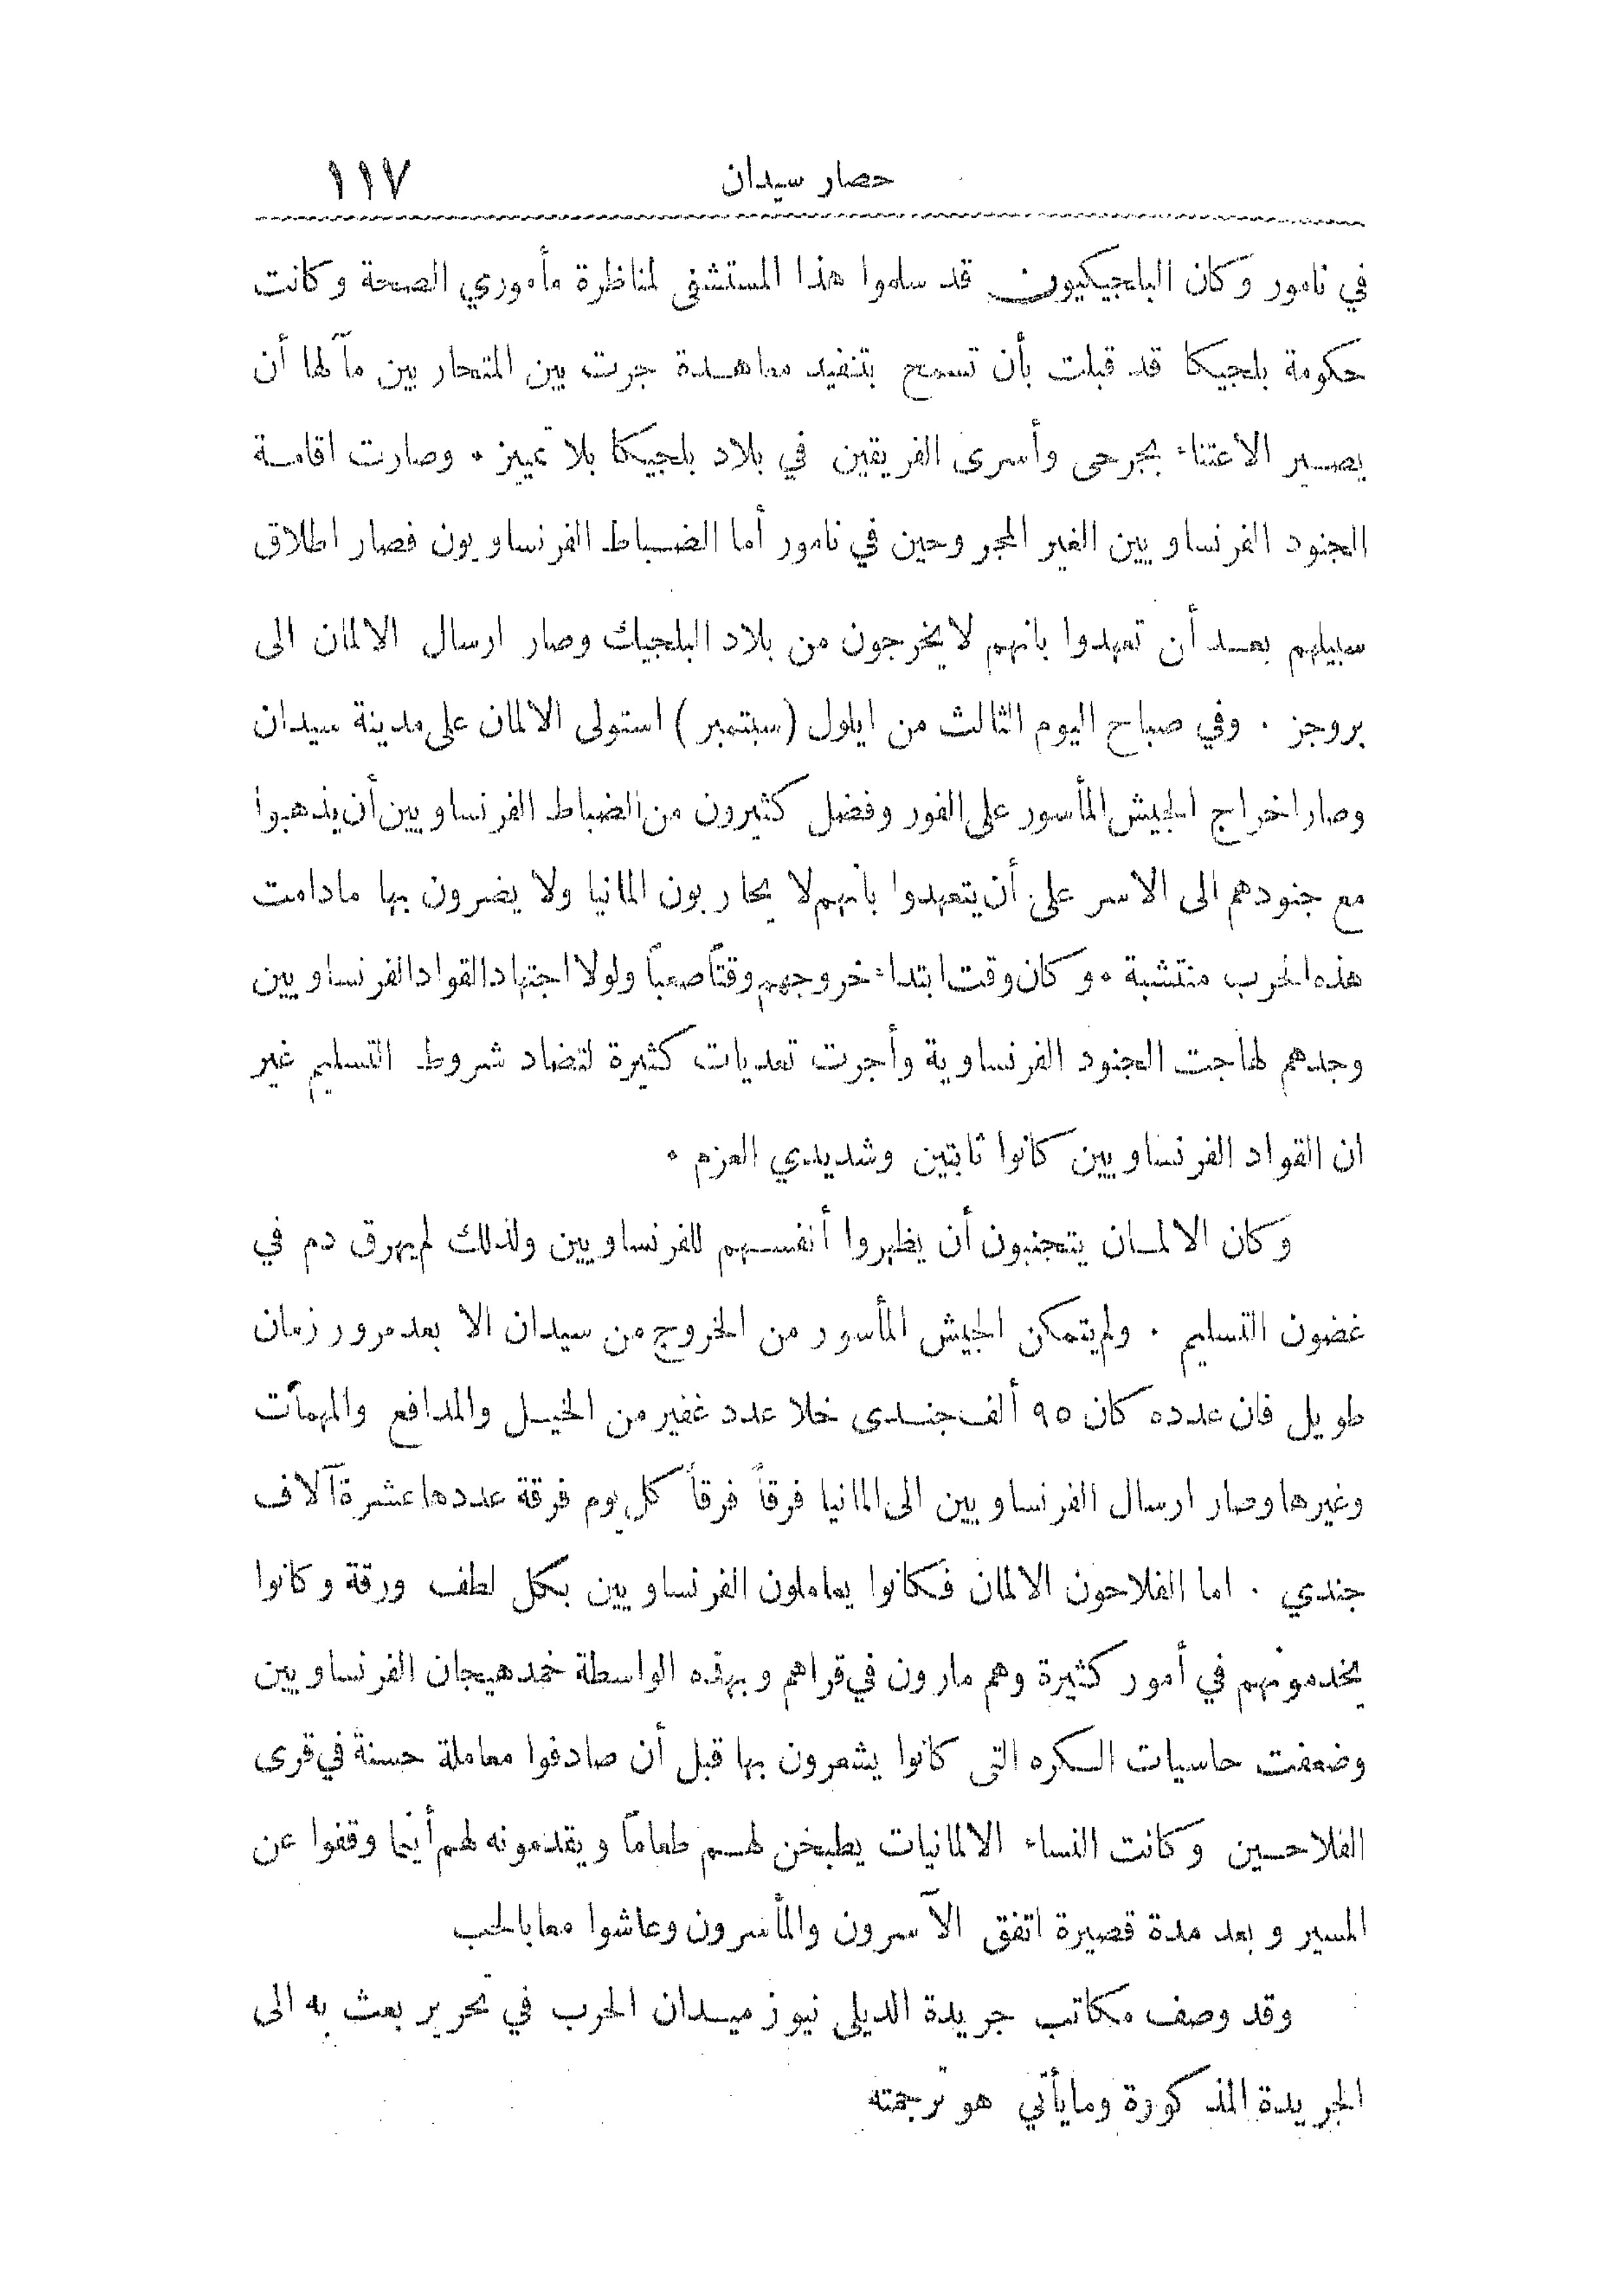 حصار سيدان ١١٧
في نامور وكان البلجيكيون قد سلموا هذا المستشفى لمناظرة مأموري الصحة وكانت
حكومة بلجيكا قد قبلت بأن تسمح بتنفيد معاهدة جرت بين المتحاربين مآلها أن
يصير الاعتناء بجرحى وأسرى الفريقين في بلاد بلجيكا بلا تمييز . وصارت اقامة
الجنود الفرنساويين الغير المجروحين في نامور أما الضباط الفرنساويون فصار اطلاق
سبيلهم بعد أن تعهدوا بانهم لا يخرجون من بلاد البلجيك وصار ارسال الالمان الى
بروجز . وفي صباح اليوم الثالث من ايلول (سبتمبر) استولى الالمان على مدينة سيدان
وصار اخراج الجيش المأسور على الفور وفضل كثيرون من الضباط الفرنساويين أن يذهبوا
مع جنودهم الى الاسر على أن يتعهدوا بانهم لا يحاربون المانيا ولا يضرون بها مادامت
هذه الحرب منتشبة . وكان وقت ابتداء خروجهم وقتاً صعباً ولولا اجتهاد القواد الفرنساويين
وجدهم لهاجت الجنود الفرنساوية وأجرت تعديات كثيرة لتضاد شروط التسليم غير
ان القواد الفرنساويين كانوا ثابتين وشديدي العزم .
وكان الالمان يتجنبون أن يظهروا أنفسهم للفرنساويين ولذلك لم يهرق دم في
غضون التسليم . ولم يتمكن الجيش المأسور من الخروج من سيدان الا بعد مرور زمان
طويل فان عدده كان ٩٥ ألف جندى خلا عدد غفير من الخيل والمدافع والمهمآت
وغيرها وصار ارسال الفرنساويين الى المانيا فرقاً فرقاً كل يوم فرقة عددها عشرة آلاف
جندي . اما الفلاحون الالمان فكانوا يعاملون الفرنساويين بكل لطف ورقة وكانوا
يخدمونهم في أمور كثيرة وهم مارون في قراهم وبهذه الواسطة خمد هيجان الفرنساويين
وضعفت حاسيات الكره التى كانوا يشعرون بها قبل أن صادفوا معاملة حسنة في قرى
الفلاحين وكانت النساء الالمانيات يطبخن لهم طعاماً ويقدمونه لهم أينما وقفوا عن
المسير وبعد مدة قصيرة اتفق الآسرون والمأسرون وعاشوا معا بالحب
وقد وصف مكاتب جريدة الديلى نيوز ميدان الحرب في تحرير بعث به الى
الجريدة المذكورة ومايأتي هو ترجمته